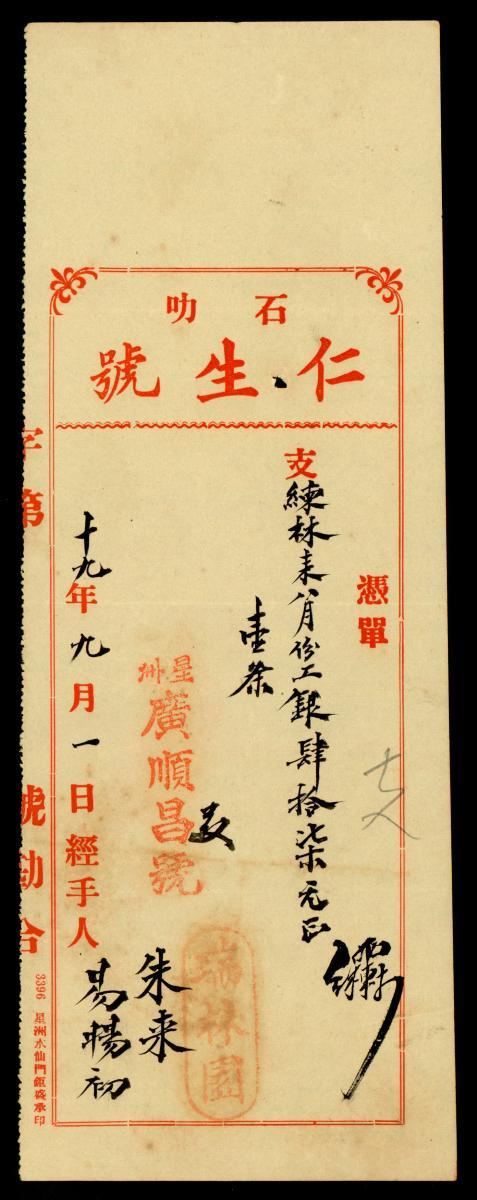 石叻
仁生號
憑單
支練林來八月份工銀肆拾柒元正
壹条
星洲
廣順昌號
瑞林園
朱来
十九年九月一日經手人
易暢初
字第 號勘合
3396 星洲水仙門鉅盛承印